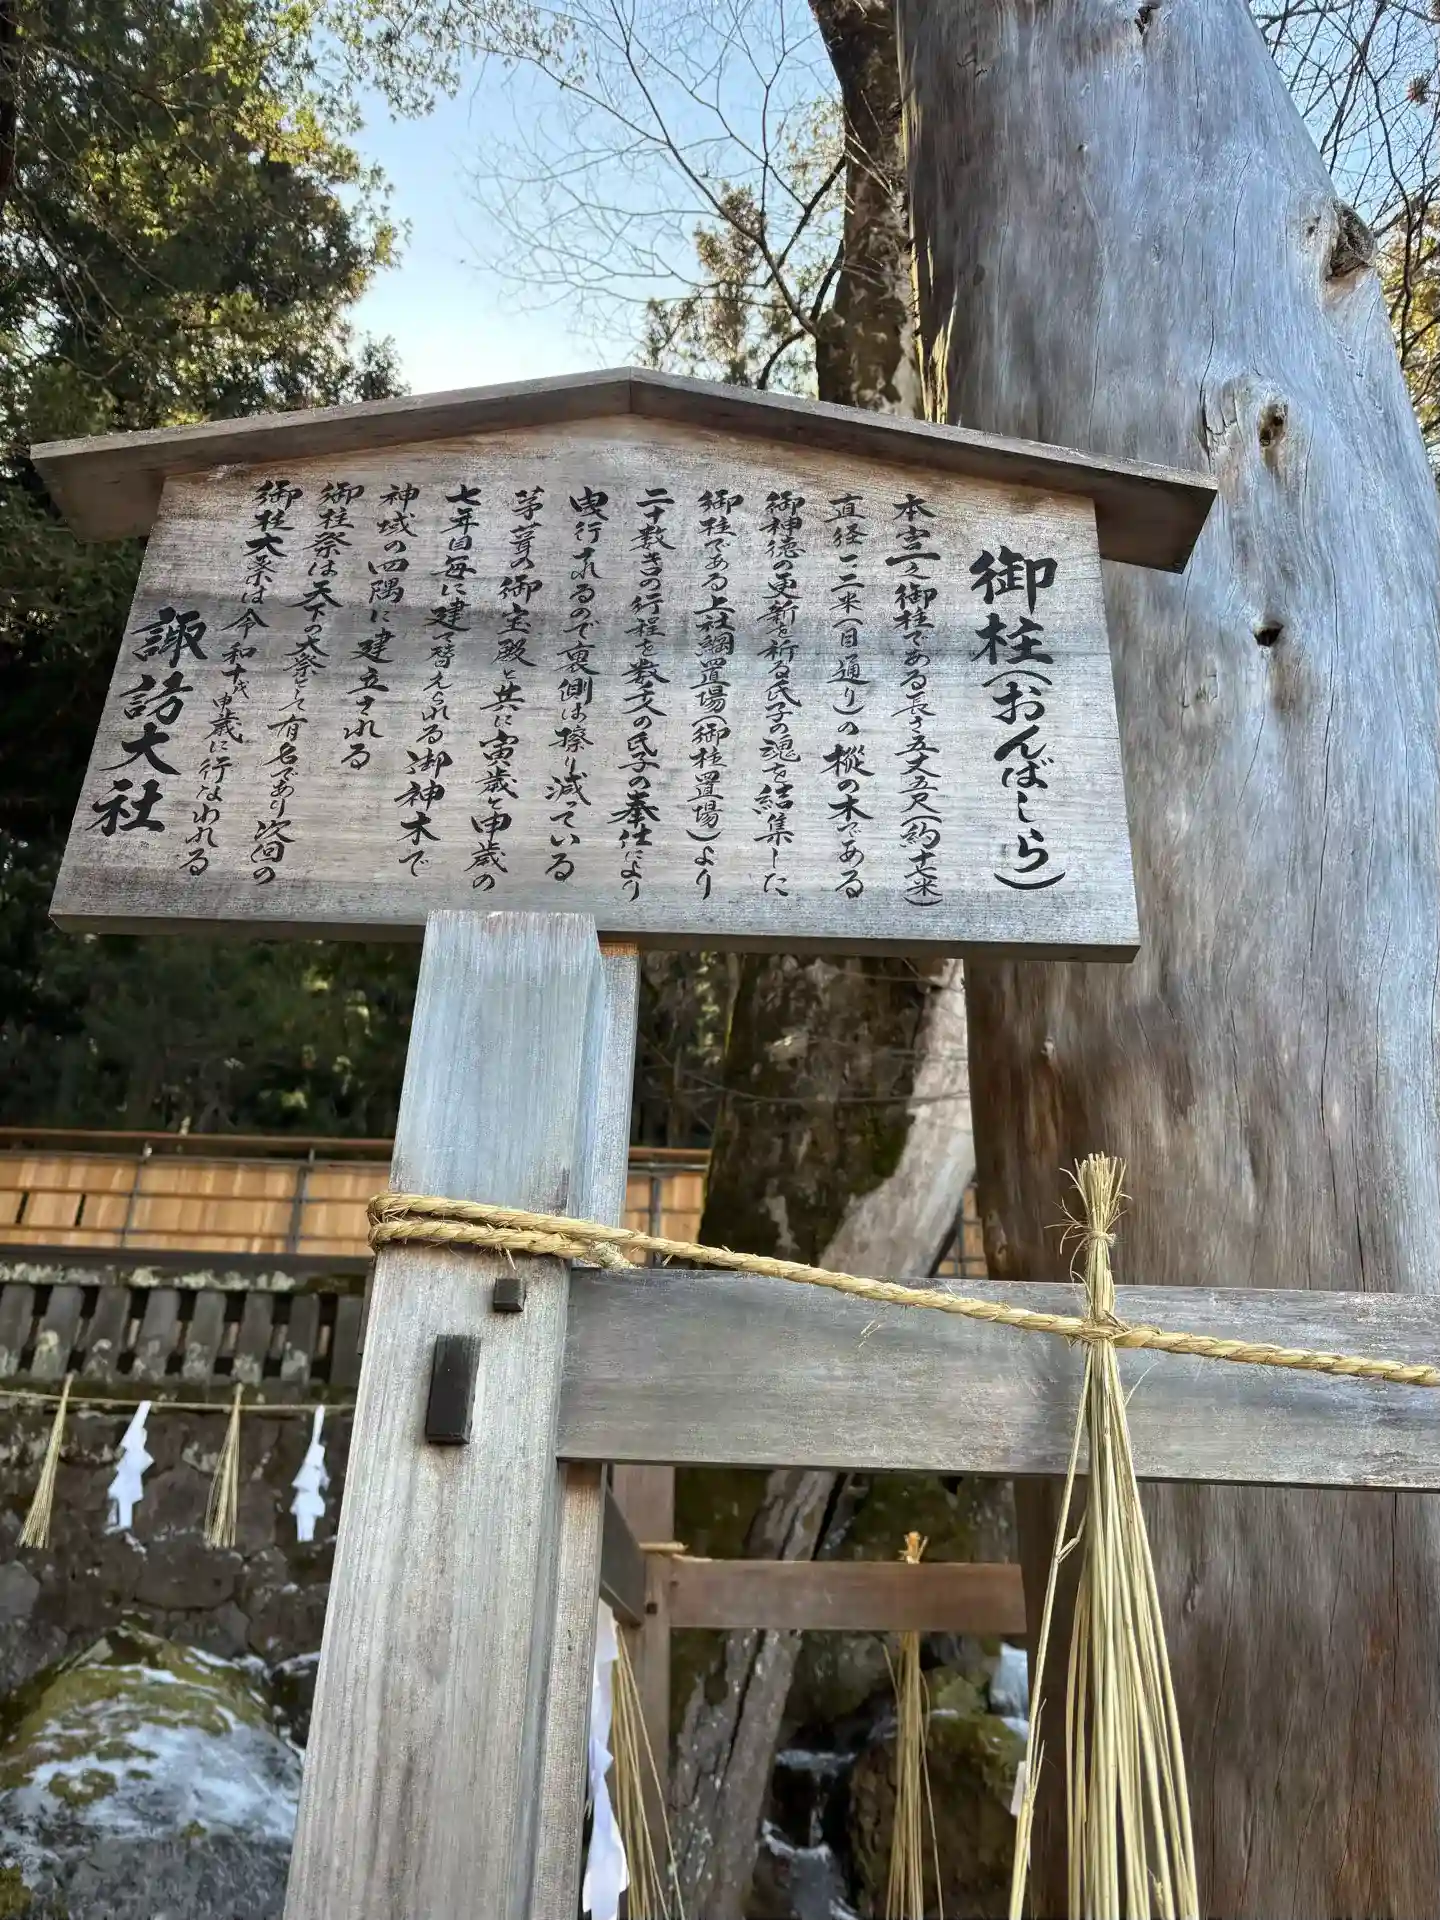 御柱(おんばしら)
本宮一之御柱である長さ五丈五尺(約十七米)
直径一・二米(目通り)の樅の木である
御神徳の更新を祈る氏子の魂を結集した
御柱である上社綱置場(御柱置場)より
二十数キロの行程を数千人の氏子の奉仕により
曳行されるので裏側は擦り減っている
茅葺の御宝殿と共に寅歳と申歳の
七年目毎に建て替えられる御神木で
神域の四隅に建立される
御柱祭は天下の大祭として有名であり次回の
御柱大祭は令和十戌申歳に行なわれる
諏訪大社